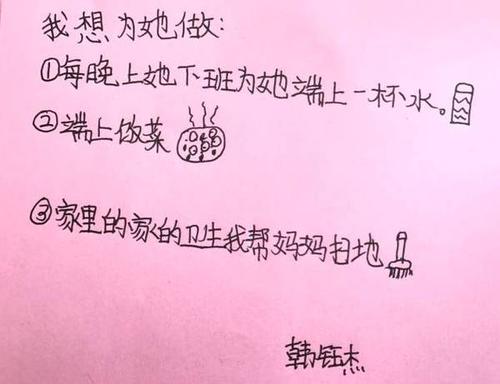 我想为她做:
①每晚上她下班为她端上一杯水。
②端上饭菜
③家里的家的卫生我帮妈妈扫地
韩钰杰